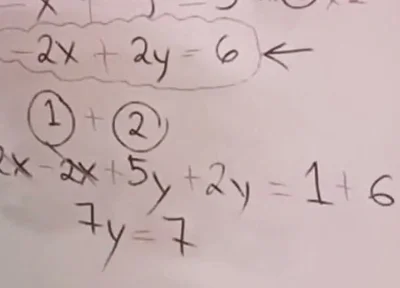 -2x + 2y = 6 ←
① + ②
2x - 2x + 5y + 2y = 1 + 6
7y = 7